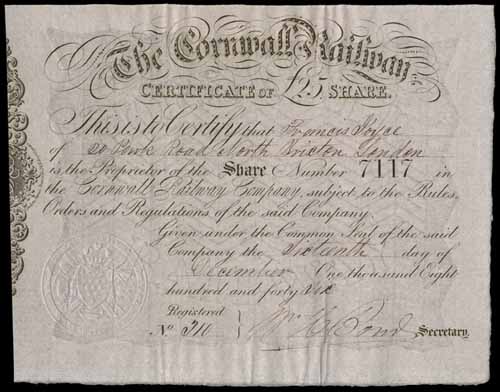 The Cornwall Railway
CERTIFICATE OF £25 SHARE.
This is to Certify that Francis Joyce
of 20 Park Road North Brixton London
is the Proprietor of the Share Number 7117 in
the Cornwall Railway Company, subject to the Rules,
Orders and Regulations of the said Company.
Given under the Common Seal of the said
Company the Sixteenth day of
December One thousand Eight
hundred and forty six
Registered
No. 310
Wm H Pond Secretary.